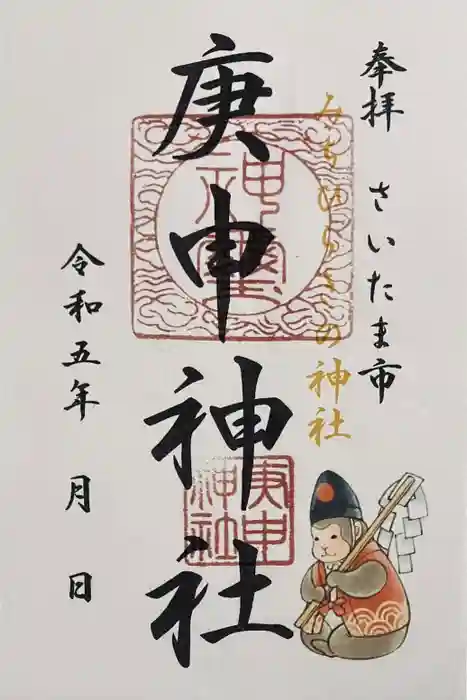 奉拝 さいたま市
みちひらきの神社
庚申神社
神璽
庚申
神社
令和五年 月 日